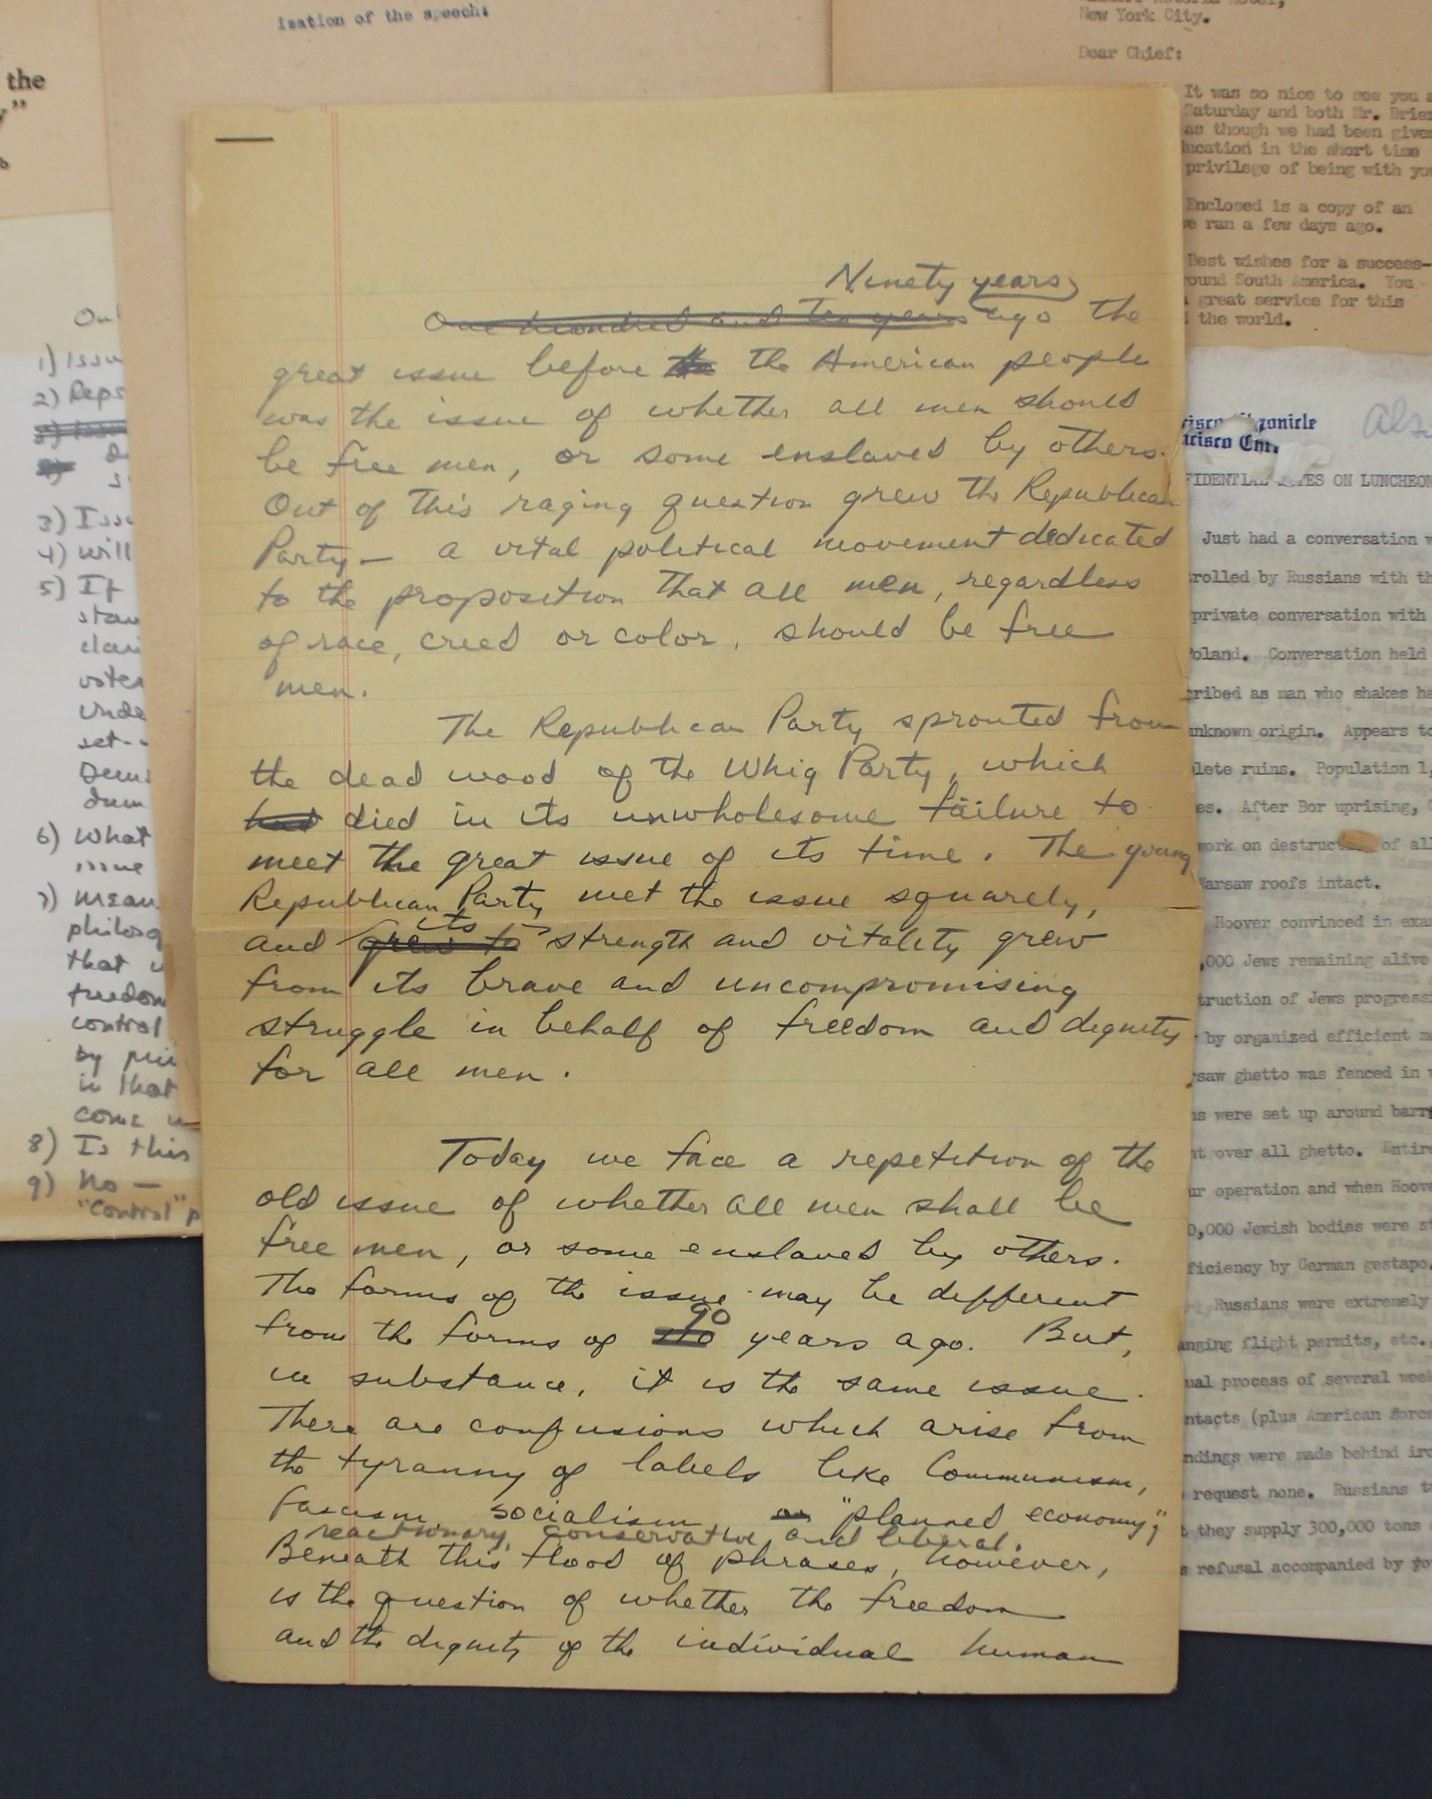 isation of the speech:
the
New York City.
Dear Chief:
It was so nice to see you
Saturday and both Mr.
as though we had been
in the short time
privilege of being with
Enclosed is a copy of an
ran a few days ago.
Best wishes for a success-
South America. You
great service for this
the world.
Ninety years
One hundred and ten years ago the
great issue before the the American people
was the issue of whether all men should
be free men, or some enslaved by others.
Out of this raging question grew the Republican
Party — a vital political movement dedicated
to the proposition that all men, regardless
of race, creed or color, should be free
men.
The Republican Party sprouted from
the dead wood of the Whig Party, which
had died in its unwholesome failure to
meet the great issue of its time. The young
Republican Party met the issue squarely,
its
and grew to strength and vitality grew
from its brave and uncompromising
struggle in behalf of freedom and dignity
for all men.
Today we face a repetition of the
old issue of whether all men shall be
free men, or some enslaved by others.
The forms of the issue may be different
90
from the forms of 110 years ago. But,
in substance, it is the same issue.
There are confusions which arise from
the tyranny of labels like Communism,
fascism socialism or "planned economy",
reactionary, conservative and liberal.
Beneath this flood of phrases, however,
is the question of whether the freedom
and the dignity of the individual human
1)
2) Reps
3)
4) Will
5) If
6) What
issue
7)
that
control
by
in that
come
8) Is this
9) No —
"Control"
Chronicle
ON LUNCHEON
Just had a conversation
by Russians with
private conversation with
Poland. Conversation held
as man who shakes
unknown origin. Appears to
ruins. Population 1,
After Bor uprising,
work on of
Warsaw roofs intact.
Hoover convinced in
,000 Jews remaining alive
of Jews
by organized efficient
ghetto was fenced in
were set up around
over all ghetto.
operation and when
0,000 Jewish bodies were
by German gestapo.
Russians were extremely
flight permits, etc.
process of several
(plus American
were made behind
request none. Russians
they supply 300,000 tons
refusal accompanied by